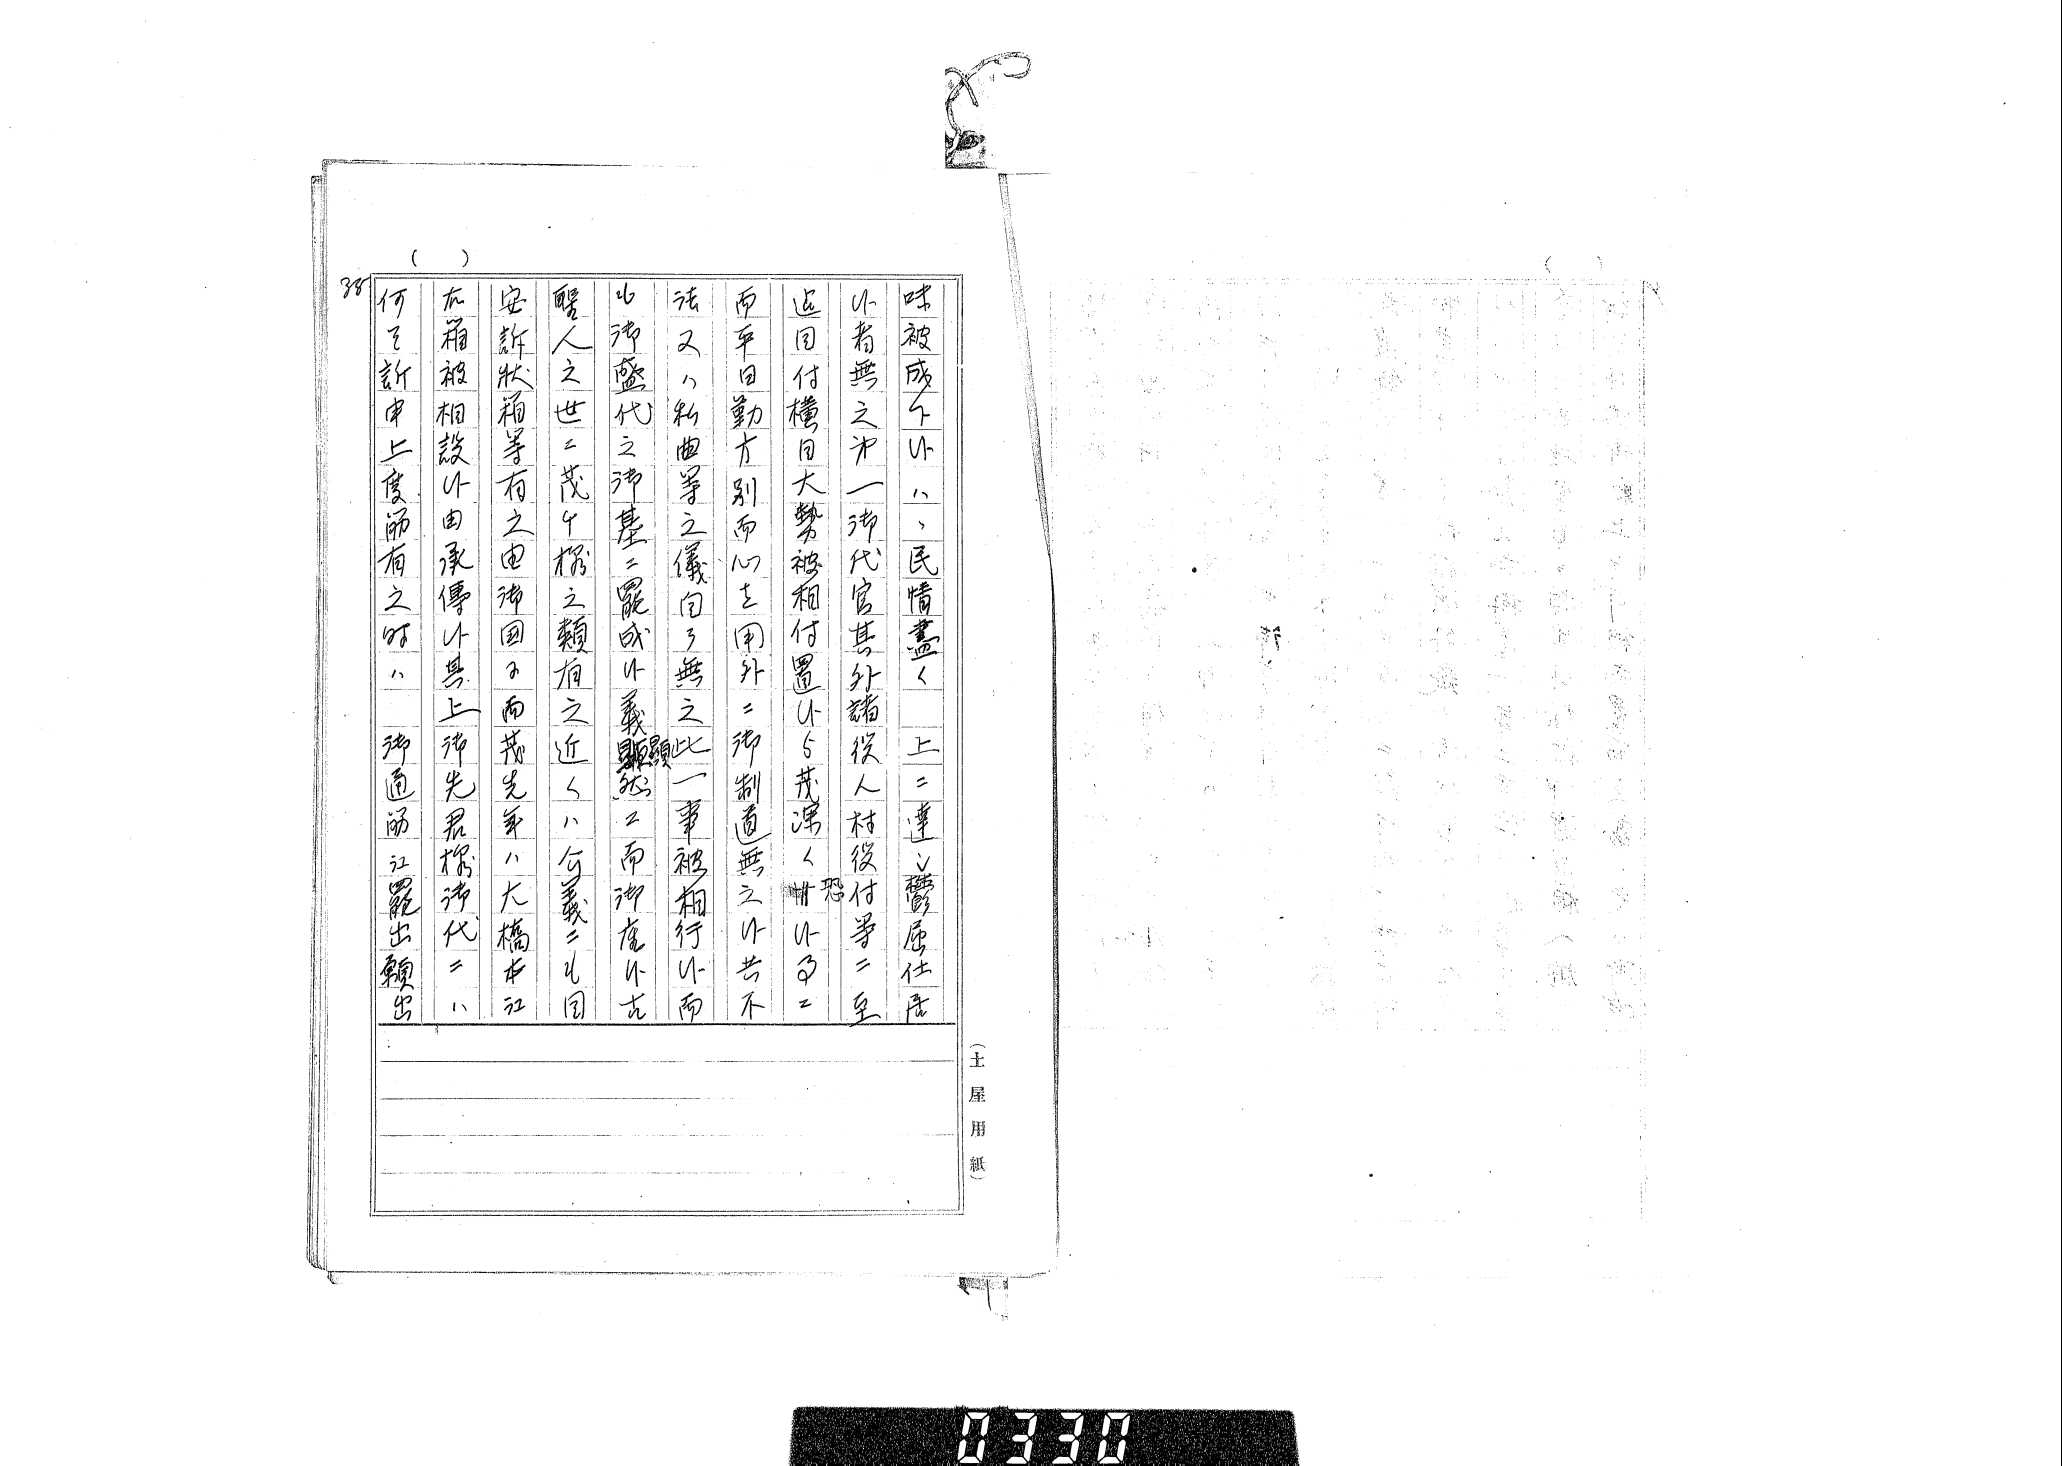 味被成下候ハヽ民情盡く　上ニ達し鬱屈仕居
候者無之第一御代官其外諸役人村役付等ニ至
迄目付横目大勢被相付置候ゟ茂深く恐候事ニ
而平日勤方別而心を用外ニ御制道無之候共不
法又ハ私曲等之儀自ら無之此一事被相行候而
も御盛代之御基ニ罷成候義顕然ニ而御座候古
聖人之世ニ茂ケ様之類有之近くハ公義ニも目
安訴状箱等有之由御国ニ而茂先年ハ大橋本江
右箱被相設候由承傳候其上御先君様御代ニハ
何そ訴申上度筋有之時ハ　御通筋江罷出願出
38
(　)
(土屋用紙)
0330